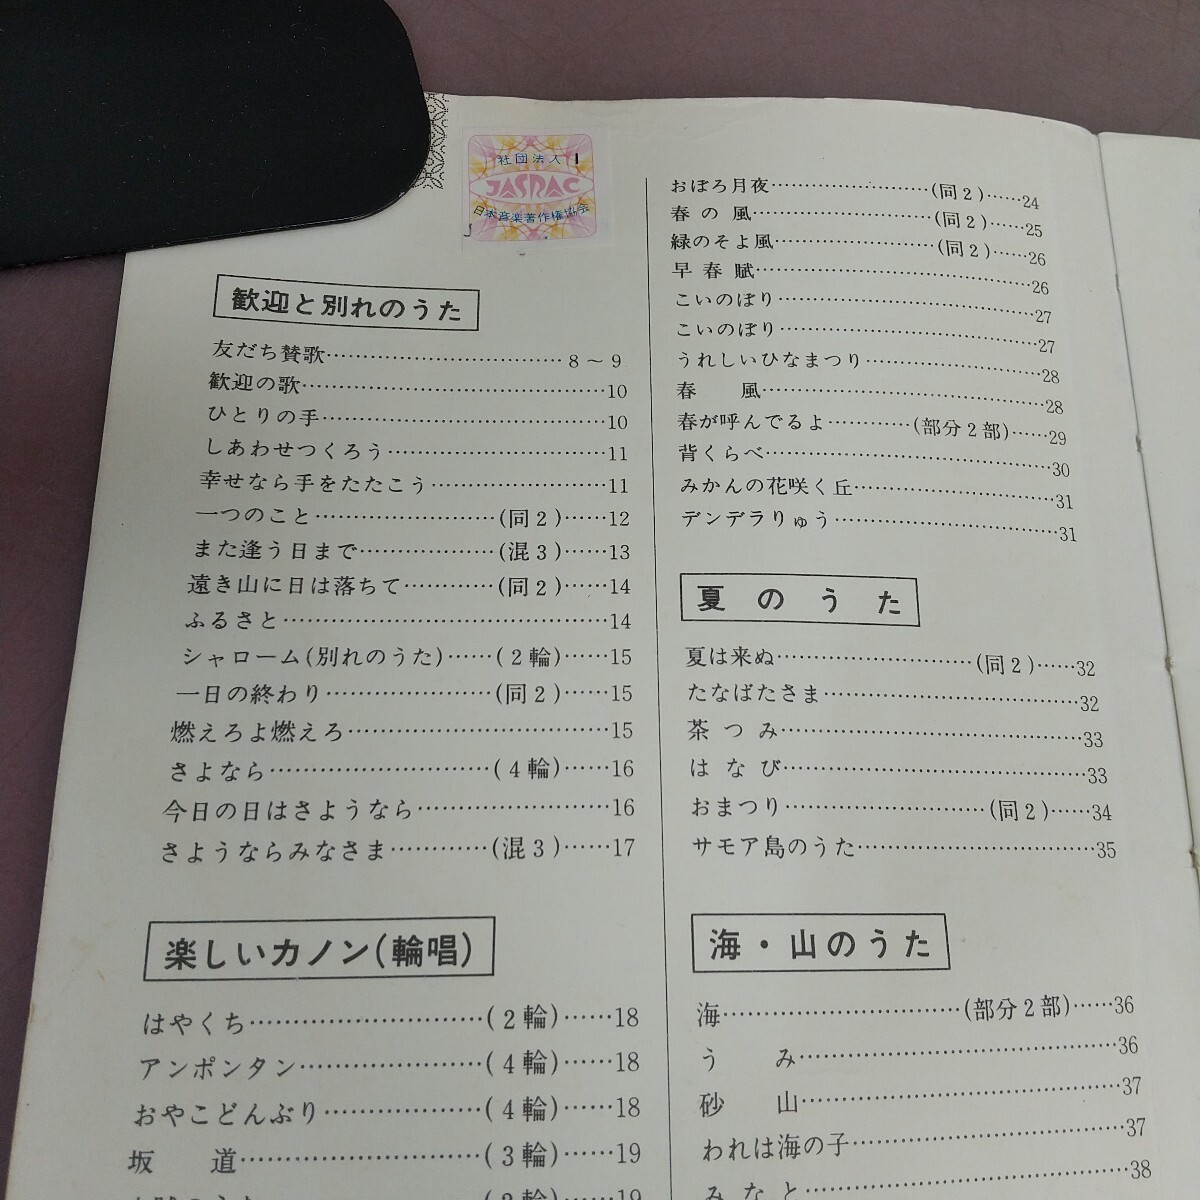 社団法人
JASRAC
日本音楽著作権協会
歓迎と別れのうた
友だち賛歌……………………………8～9
歓迎の歌……………………………………10
ひとりの手…………………………………10
しあわせつくろう…………………………11
幸せなら手をたたこう……………………11
一つのこと……………………(同2)……12
また逢う日まで………………(混3)……13
遠き山に日は落ちて…………(同2)……14
ふるさと……………………………………14
シャローム(別れのうた)……(2輪)……15
一日の終わり…………………(同2)……15
燃えろよ燃えろ……………………………15
さよなら………………………(4輪)……16
今日の日はさようなら……………………16
さようならみなさま…………(混3)……17
楽しいカノン(輪唱)
はやくち………………………(2輪)……18
アンポンタン…………………(4輪)……18
おやこどんぶり………………(4輪)……18
坂道……………………………(3輪)……19
おぼろ月夜……………………(同2)……24
春の風…………………………(同2)……25
緑のそよ風……………………(同2)……26
早春賦………………………………………26
こいのぼり…………………………………27
こいのぼり…………………………………27
うれしいひなまつり………………………28
春風…………………………………………28
春が呼んでるよ…………(部分2部)……29
背くらべ……………………………………30
みかんの花咲く丘…………………………31
デンデラりゅう……………………………31
夏のうた
夏は来ぬ………………………(同2)……32
たなばたさま………………………………32
茶つみ………………………………………33
はなび………………………………………33
おまつり………………………(同2)……34
サモア島のうた……………………………35
海・山のうた
海…………………………(部分2部)……36
うみ…………………………………………36
砂山…………………………………………37
われは海の子………………………………37
みなと………………………………………38